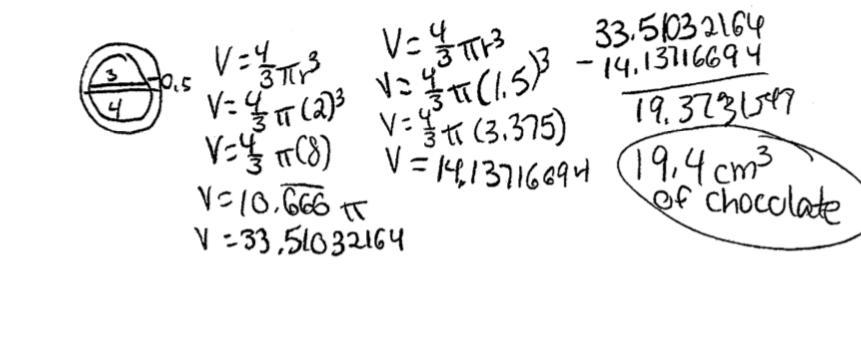 3
0.5
4
V = 4/3 πr³
V = 4/3 π (2)³
V = 4/3 π(8)
V = 10.6̅6̅6̅ π
V = 33.51032164
V = 4/3 πr³
V = 4/3 π(1.5)³
V = 4/3 π (3.375)
V = 14.13716694
33.51032164
- 14.13716694
19.3731547
19.4 cm³
of chocolate